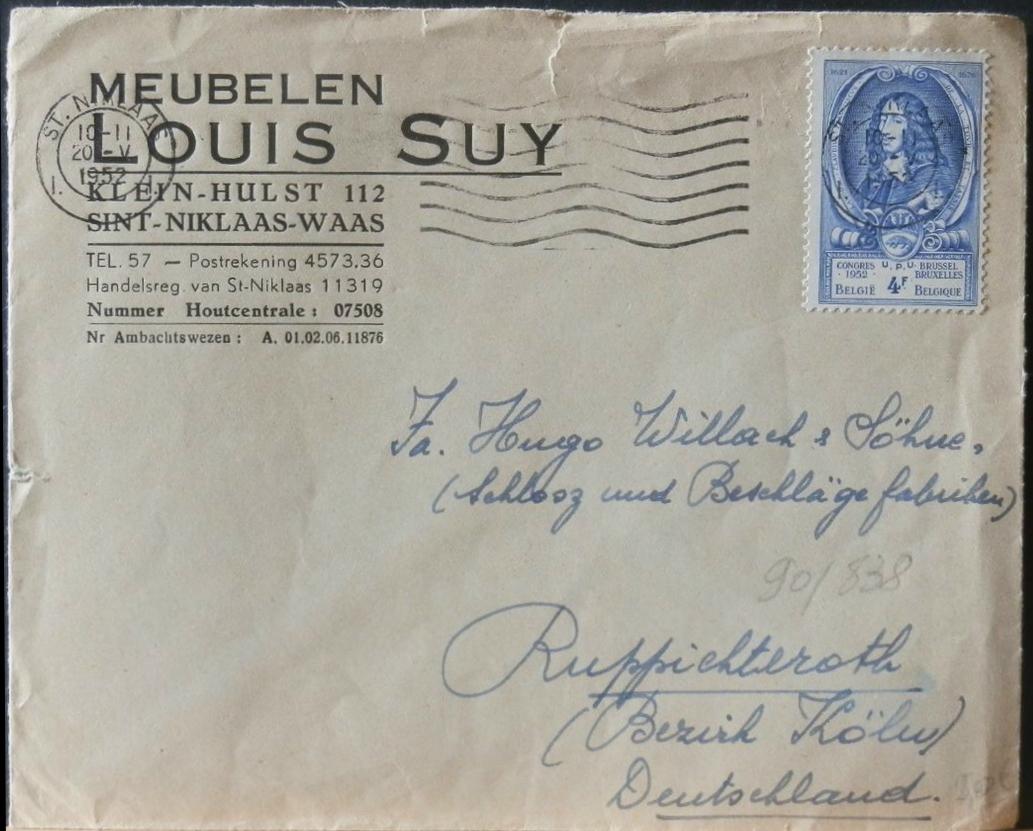 MEUBELEN
LOUIS SUY
KLEIN-HULST 112
SINT-NIKLAAS-WAAS
TEL. 57 — Postrekening 4573.36
Handelsreg. van St-Niklaas 11319
Nummer Houtcentrale : 07508
Nr Ambachtswezen : A. 01.02.06.11876
ST. NIKLAAS
10-11
20-V
1952
1621 1676
CONGRES U.P.U. BRUSSEL
1952 BRUXELLES
BELGIË 4F BELGIQUE
Fa. Hugo Willach & Söhne,
(Schlosz und Beschläge fabriken)
90/838
Ruppichteroth
(Bezirk Köln)
Deutschland.